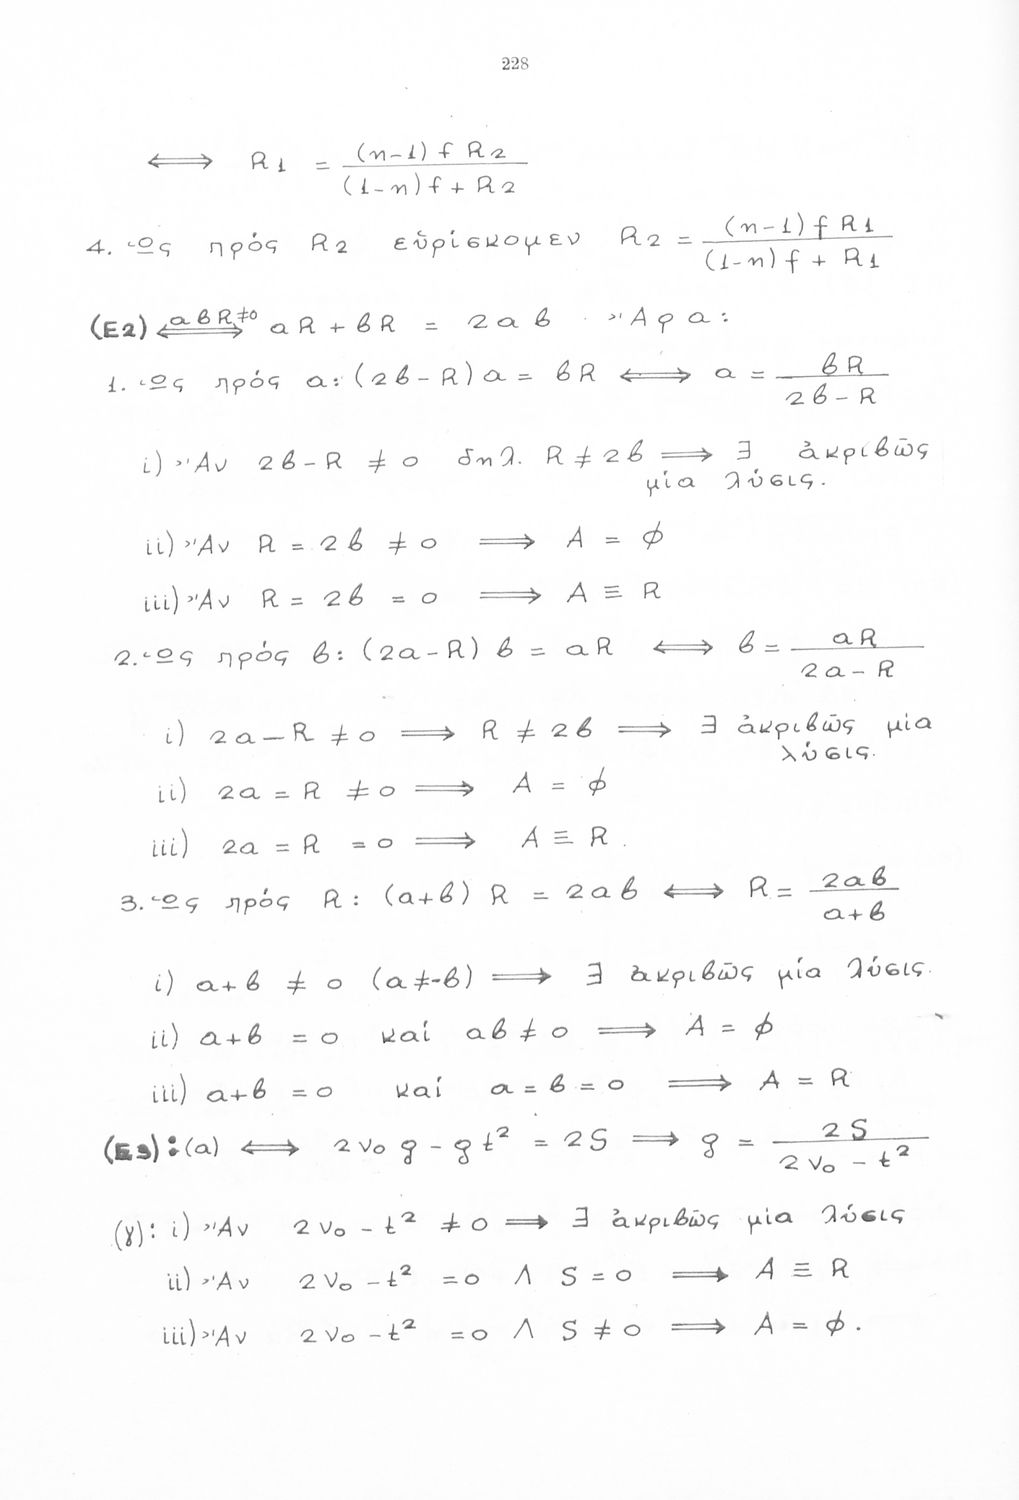 228
⟺ R1 = (n-1) f R2 / (1-n) f + R2
4. Ὡς πρός R2 εὑρίσκομεν R2 = (n-1) f R1 / (1-n) f + R1
(E2) ⟺ aβR≠0 aR + βR = 2aβ Ἄρα:
1. Ὡς πρός a: (2β-R)a = βR ⟺ a = βR / 2β-R
i) Ἄν 2β-R ≠ 0 δηλ. R ≠ 2β ⟹ ∃ ἀκριβῶς
μία λύσις.
ii) Ἄν R = 2β ≠ 0 ⟹ A = ϕ
iii) Ἄν R = 2β = 0 ⟹ A ≡ R
2. Ὡς πρός β: (2a-R) β = aR ⟺ β = aR / 2a-R
i) 2a-R ≠ 0 ⟹ R ≠ 2β ⟹ ∃ ἀκριβῶς μία
λύσις.
ii) 2a = R ≠ 0 ⟹ A = ϕ
iii) 2a = R = 0 ⟹ A ≡ R.
3. Ὡς πρός R: (a+β) R = 2aβ ⟺ R = 2aβ / a+β
i) a+β ≠ 0 (a≠-β) ⟹ ∃ ἀκριβῶς μία λύσις.
ii) a+β = 0 καί aβ ≠ 0 ⟹ A = ϕ
iii) a+β = 0 καί a = β = 0 ⟹ A = R
(E3): (a) ⟺ 2v₀g - gt² = 2S ⟹ g = 2S / 2v₀ - t²
(γ): i) Ἄν 2v₀ - t² ≠ 0 ⟹ ∃ ἀκριβῶς μία λύσις
ii) Ἄν 2v₀ - t² = 0 Λ S = 0 ⟹ A ≡ R
iii) Ἄν 2v₀ - t² = 0 Λ S ≠ 0 ⟹ A = ϕ.